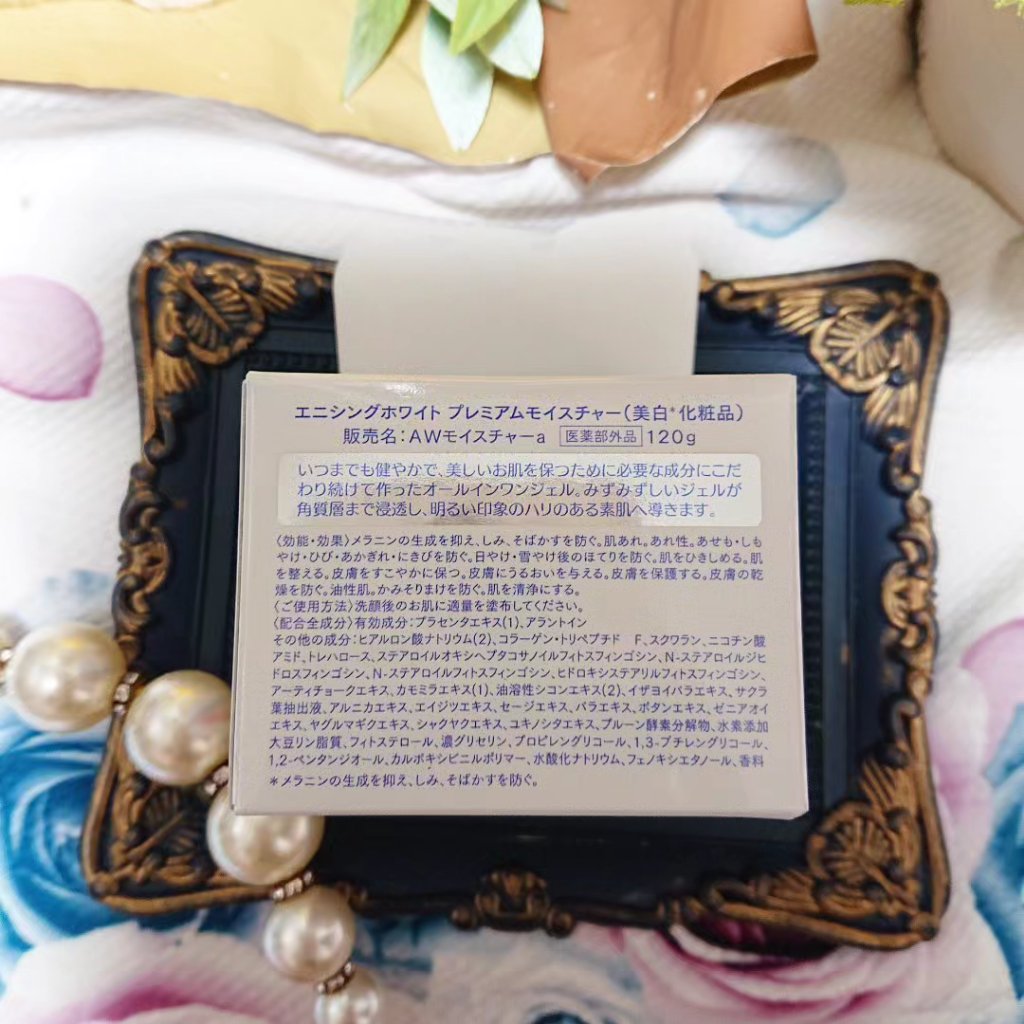 エニシングホワイト プレミアムモイスチャー(美白*化粧品)
販売名:AWモイスチャーa 医薬部外品 120g
いつまでも健やかで、美しいお肌を保つために必要な成分にこだ
わり続けて作ったオールインワンジェル。みずみずしいジェルが
角質層まで浸透し、明るい印象のハリのある素肌へ導きます。
〈効能・効果〉メラニンの生成を抑え、しみ、そばかすを防ぐ。肌あれ。あれ性。あせも・しも
やけ・ひび・あかぎれ・にきびを防ぐ。日やけ・雪やけ後のほてりを防ぐ。肌をひきしめる。肌
を整える。皮膚をすこやかに保つ。皮膚にうるおいを与える。皮膚を保護する。皮膚の乾
燥を防ぐ。油性肌。かみそりまけを防ぐ。肌を清浄にする。
〈ご使用方法〉洗顔後のお肌に適量を塗布してください。
〈配合全成分〉有効成分:プラセンタエキス(1)、アラントイン
その他の成分:ヒアルロン酸ナトリウム(2)、コラーゲン・トリペプチド F、スクワラン、ニコチン酸
アミド、トレハロース、ステアロイルオキシヘプタコサノイルフィトスフィンゴシン、N-ステアロイルジヒ
ドロスフィンゴシン、N-ステアロイルフィトスフィンゴシン、ヒドロキシステアリルフィトスフィンゴシン、
アーティチョークエキス、カモミラエキス(1)、油溶性シコンエキス(2)、イザヨイバラエキス、サクラ
葉抽出液、アルニカエキス、エイジツエキス、セージエキス、バラエキス、ボタンエキス、ゼニアオイ
エキス、ヤグルマギクエキス、シャクヤクエキス、ユキノシタエキス、プルーン酵素分解物、水素添加
大豆リン脂質、フィトステロール、濃グリセリン、プロピレングリコール、1,3-ブチレングリコール、
1,2-ペンタンジオール、カルボキシビニルポリマー、水酸化ナトリウム、フェノキシエタノール、香料
*メラニンの生成を抑え、しみ、そばかすを防ぐ。